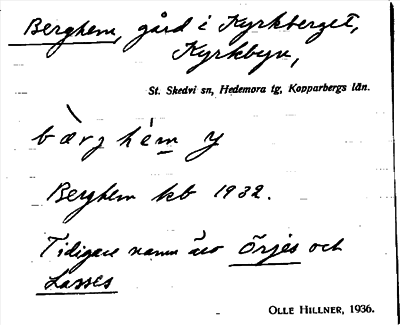 Berghem, gård i Kyrkberget,
Kyrkbyn,
St. Skedvi sn, Hedemora tg, Kopparbergs län.
bὰrghém y
Berghem kb 1932.
Tidigare namn äro Örjes och
Lasses
OLLE HILLNER, 1936.